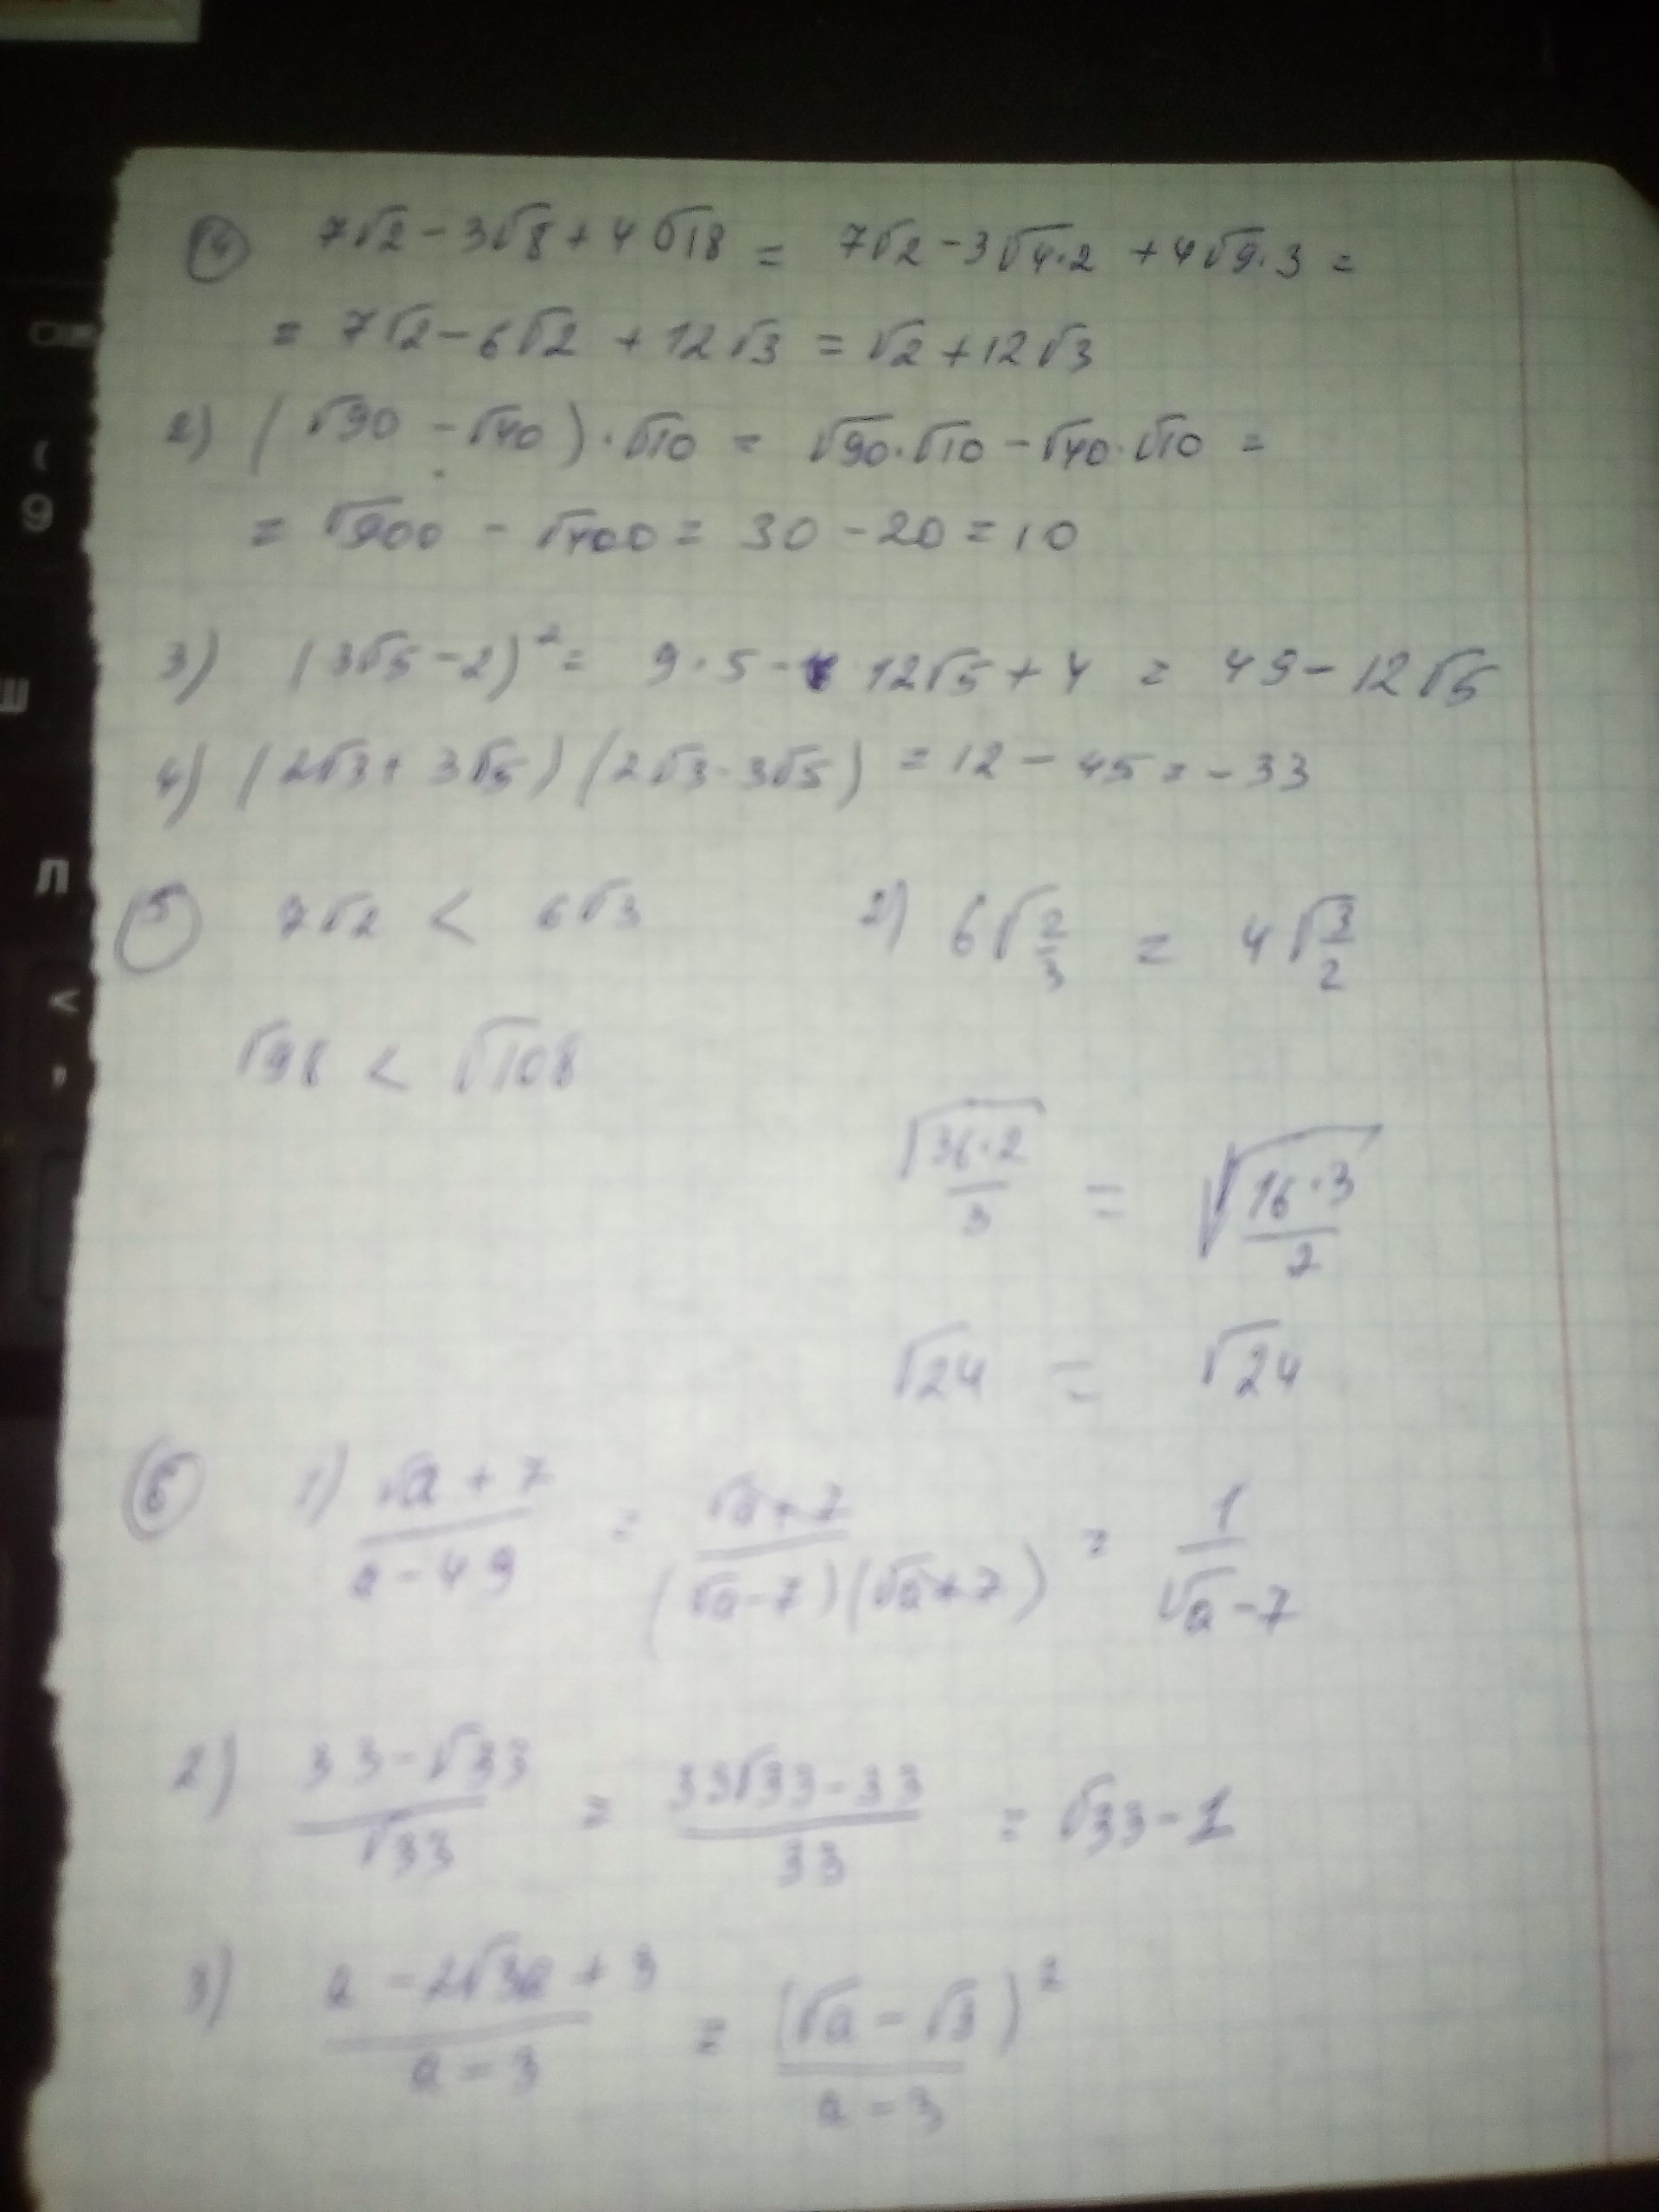 ④ 7√2 - 3√8 + 4√18 = 7√2 - 3√4·2 + 4√9·3 =
= 7√2 - 6√2 + 12√3 = √2 + 12√3
2) (√90 - √40)·√10 = √90·√10 - √40·√10 =
= √900 - √400 = 30 - 20 = 10
3) (3√5 - 2)² = 9·5 - 12√5 + 4 = 49 - 12√5
4) (2√3 + 3√5)(2√3 - 3√5) = 12 - 45 = -33
⑤ 7√2 < 6√3
√98 < √108
2) 6√(2/3) = 4√(3/2)
√(36·2/3) = √(16·3/2)
√24 = √24
⑥ 1) (√a + 7)/(a - 49) = (√a + 7)/((√a - 7)(√a + 7)) = 1/(√a - 7)
2) (33 - √33)/√33 = (33√33 - 33)/33 = √33 - 1
3) (a - 2√3a + 3)/(a - 3) = (√a - √3)²/(a - 3)
(
9
Ш
Л
<
,